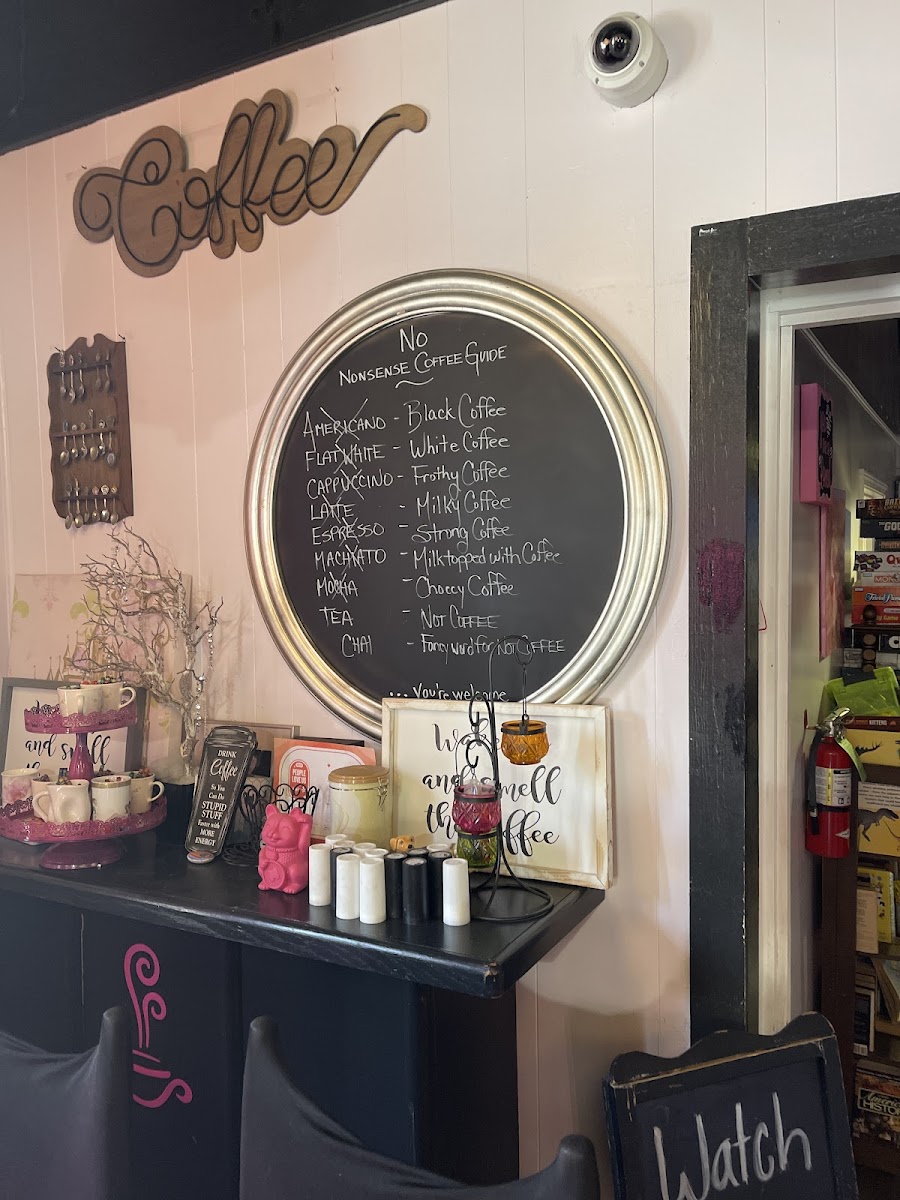 Coffee
No
Nonsense Coffee Guide
Americano - Black Coffee
Flat White - White Coffee
Cappuccino - Frothy Coffee
Latte - Milky Coffee
Espresso - Strong Coffee
Machiato - Milk topped with Coffee
Mocha - Choccy Coffee
Tea - Not Coffee
Chai - Fancy word for Not Coffee
... you're welcome
and smell
the
DRINK
Coffee
So You
Can Do
STUPID
STUFF
Faster with
MORE
ENERGY
PEOPLE
and smell
the coffee
Watch
American
HISTORY
KITTENS